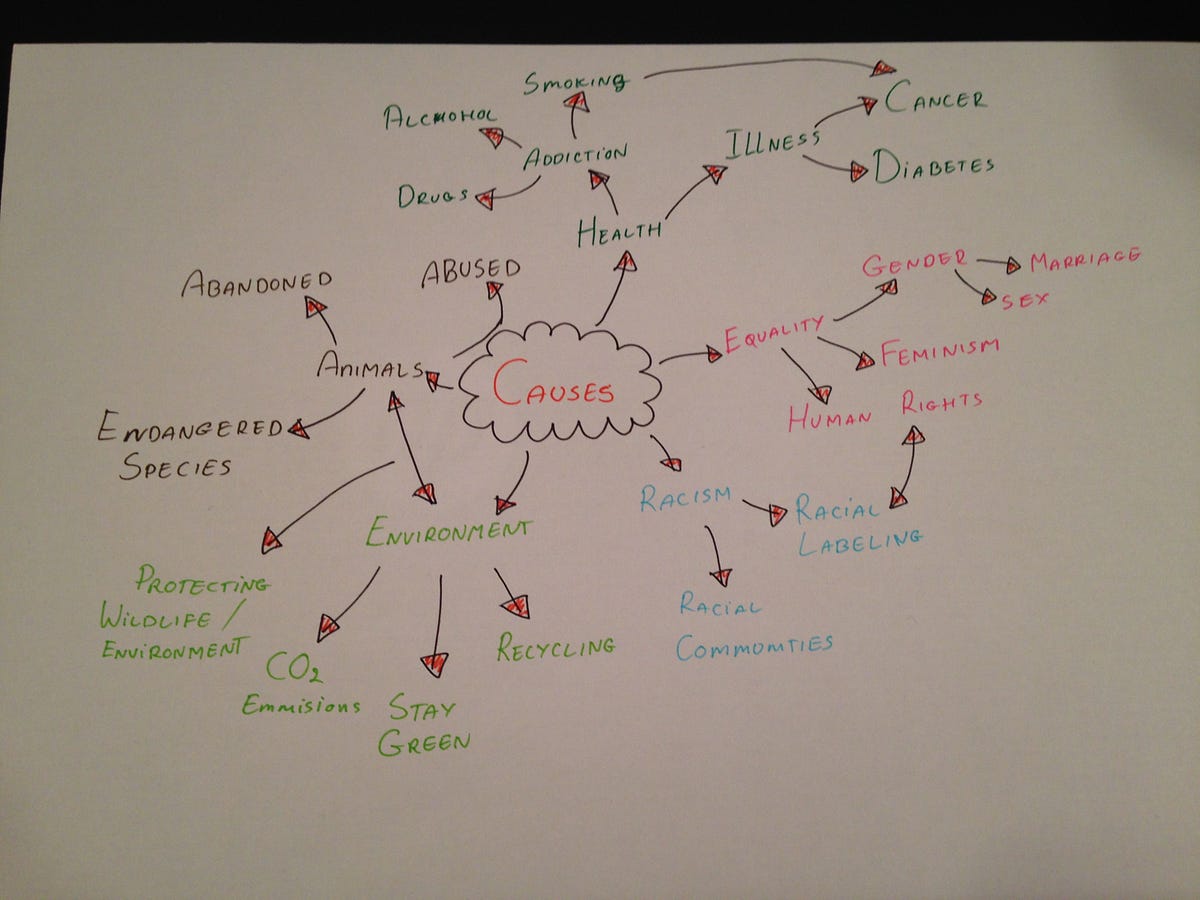 Smoking
Alcmohol
Cancer
Illness
Addiction
Diabetes
Drugs
Health
Abandoned
Abused
Gender
Marriage
Sex
Equality
Feminism
Animals
Causes
Human Rights
Endangered
Species
Racism
Racial
Labeling
Environment
Protecting
Wildlife /
Environment
Racial
Commomties
Recycling
CO2
Emmisions
Stay
Green